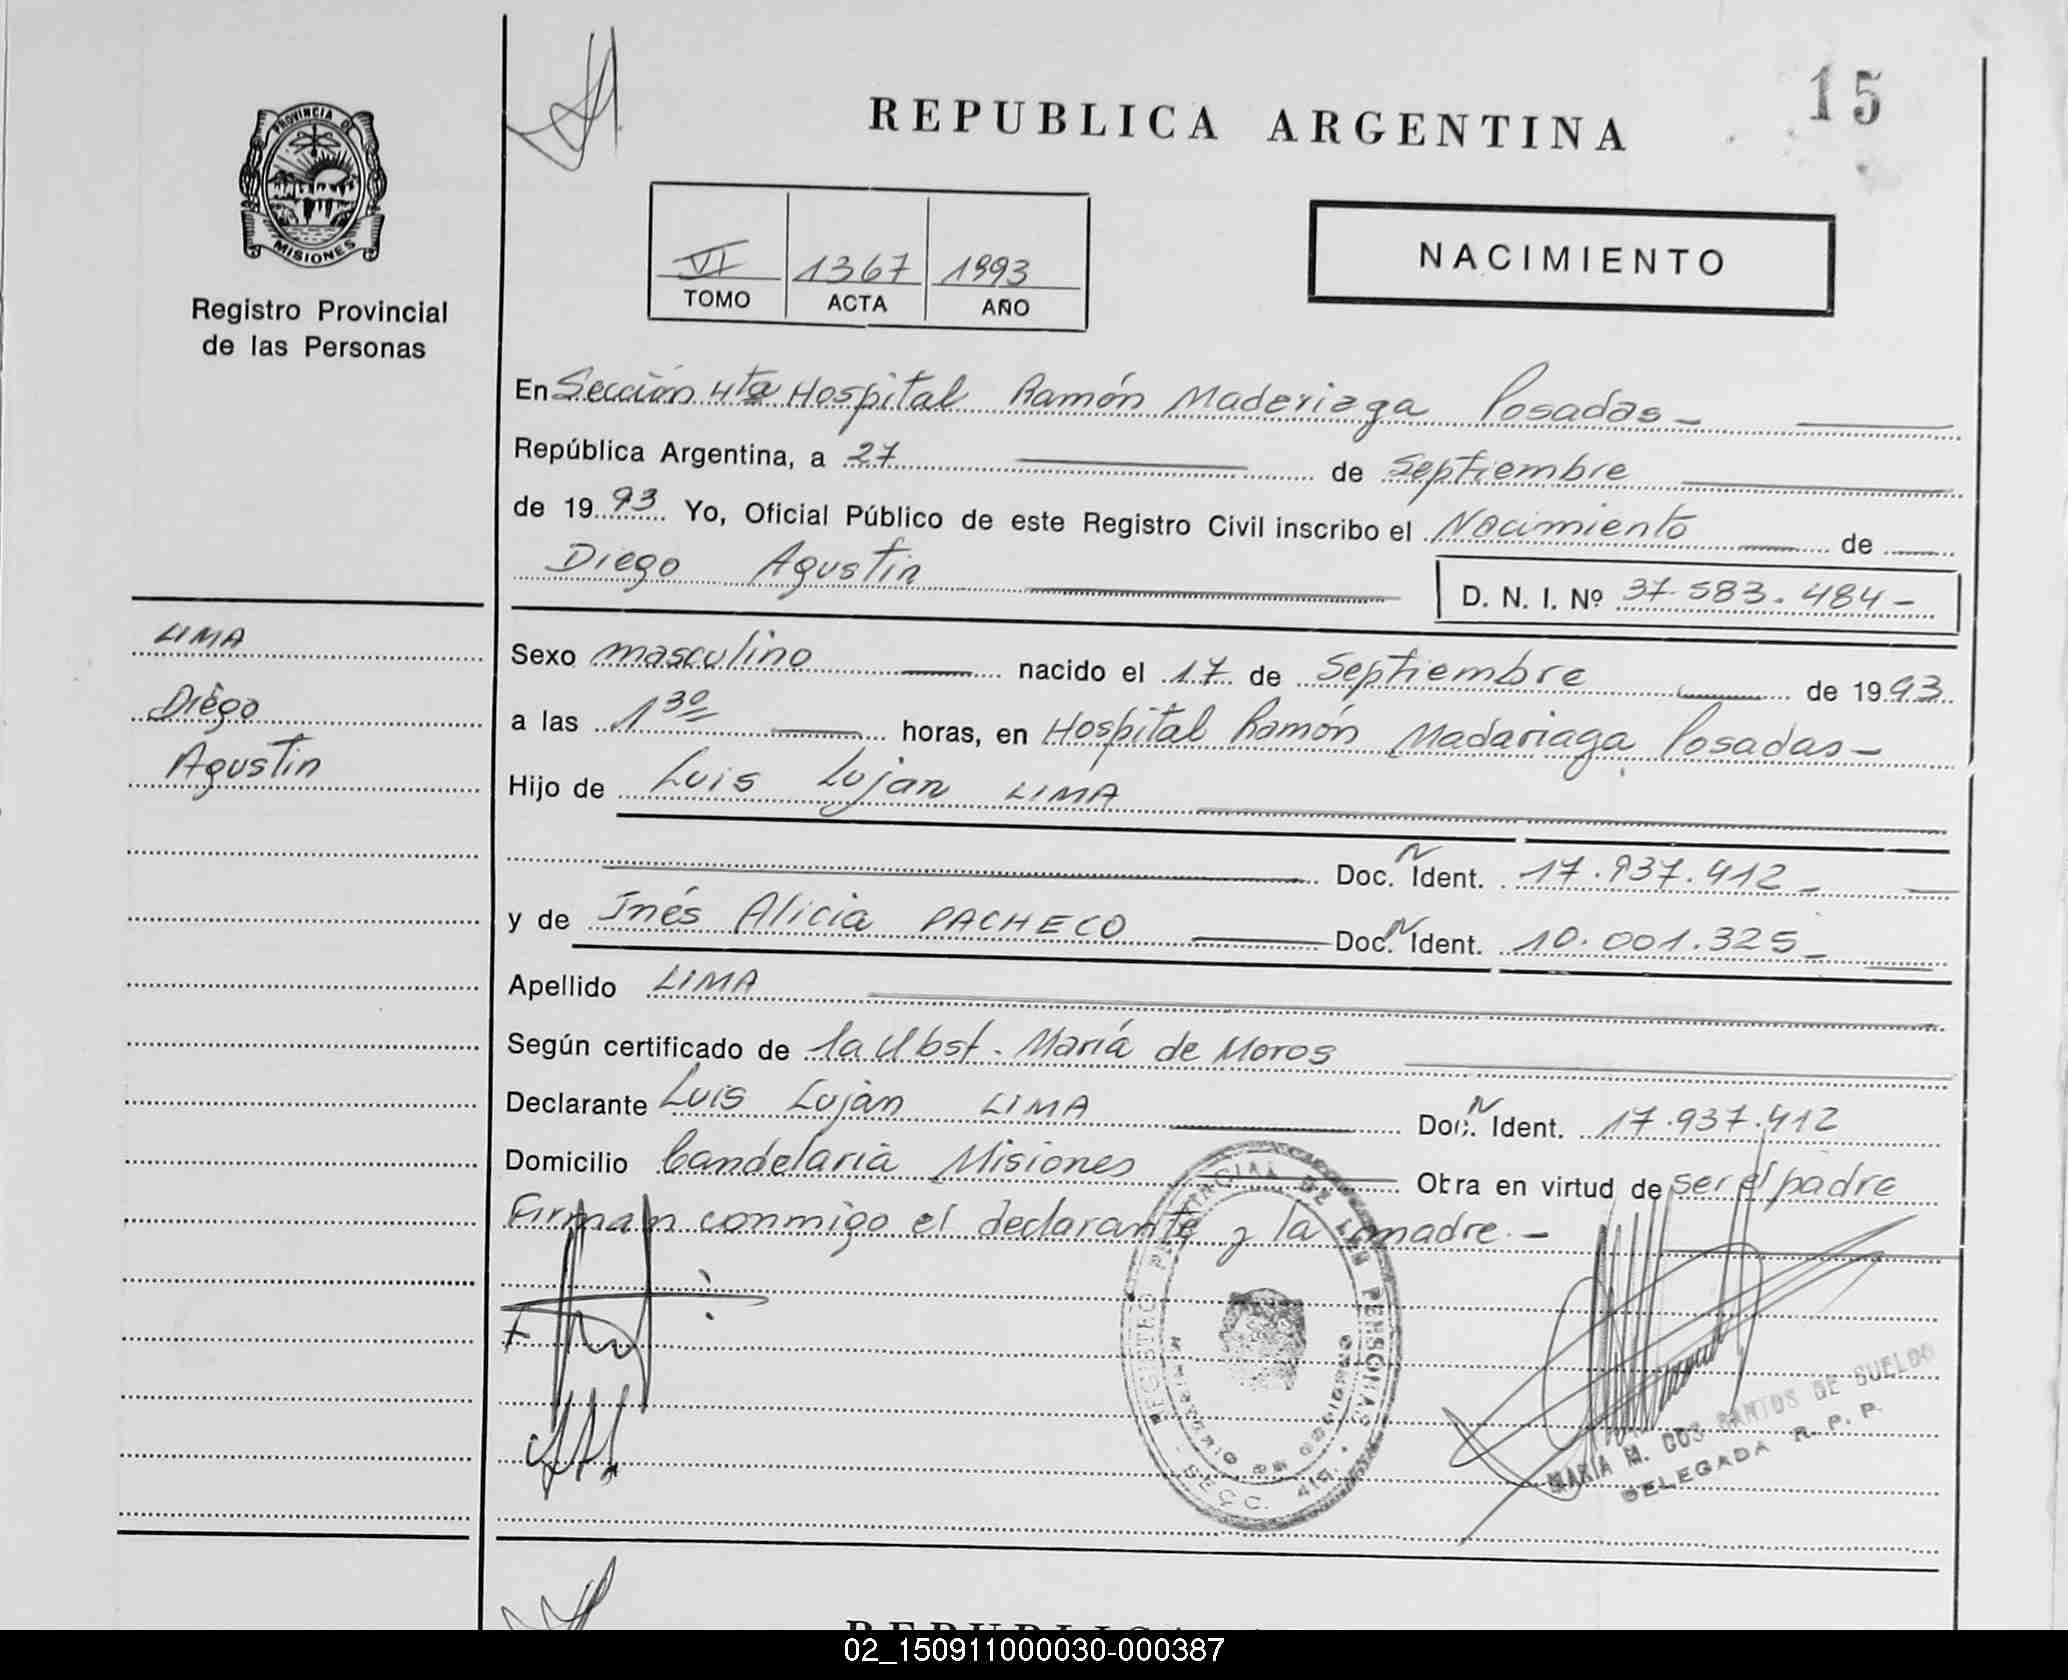 15
REPUBLICA ARGENTINA
PROVINCIA DE
MISIONES
Registro Provincial
de las Personas
VI 1367 1993
TOMO ACTA AÑO
NACIMIENTO
En Sección 4ta Hospital Ramón Maderiaga Posadas -
República Argentina, a 27 de Septiembre
de 1993 Yo, Oficial Público de este Registro Civil inscribo el Nacimiento de
Diego Agustin D. N. I. Nº 37.583.484-
LIMA
Diego
Agustin
Sexo masculino nacido el 17 de Septiembre de 1993
a las 1 30 horas, en Hospital Ramón Madariaga Posadas -
Hijo de Luis Lujan LIMA
Doc. N Ident. 17.937.412 -
y de Inés Alicia PACHECO Doc. N Ident. 10.001.325 -
Apellido LIMA
Según certificado de la Obst. María de Moros
Declarante Luis Luján LIMA Doc. N Ident. 17.937.412
Domicilio Candelaria Misiones Obra en virtud de ser el padre
Firman conmigo el declarante y la madre. -
REGISTRO PROVINCIAL DE LAS PERSONAS
SECC. 4ta.
MARIA M. DOS SANTOS DE SUELDO
DELEGADA R. P. P.
02_150911000030-000387